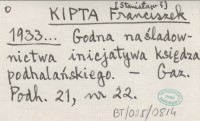 [Stanisław ?]
KIPTA Franciszek
1933... Godna naśladow-
nictwa inicjatywa księdza
podhalańskiego. — Gaz.
Podh. 21, nr 22.
BT/025/0814